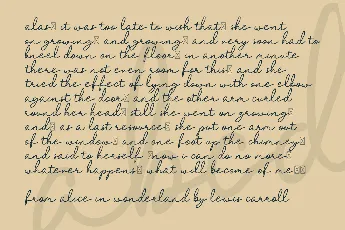 alas it was too late to wish that she went
on growing and growing and very soon had to
kneel down on the floor in another minute
there was not even room for this and she
tried the effect of lying down with one elbow
against the door and the other arm curled
round her head still she went on growing
and as a last resource she put one arm out
of the window and one foot up the chimney
and said to herself now i can do no more
whatever happens what will become of me
from alice in wonderland by lewis carroll